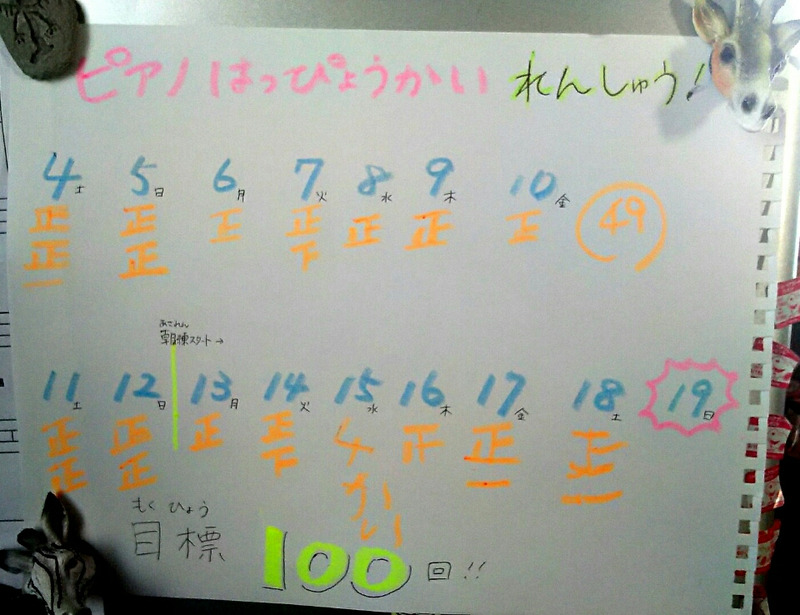 ピアノはっぴょうかい れんしゅう!
4土 5日 6月 7火 8水 9木 10金
正 正 正 正 正 正 正 49
正 正 下
一
あされん
朝練スタート→
11土 12日 13月 14火 15水 16木 17金 18土 19日
正 正 正 正 4 正 正 正
正 正 下 かい 一
もくひょう
目標 100回!!